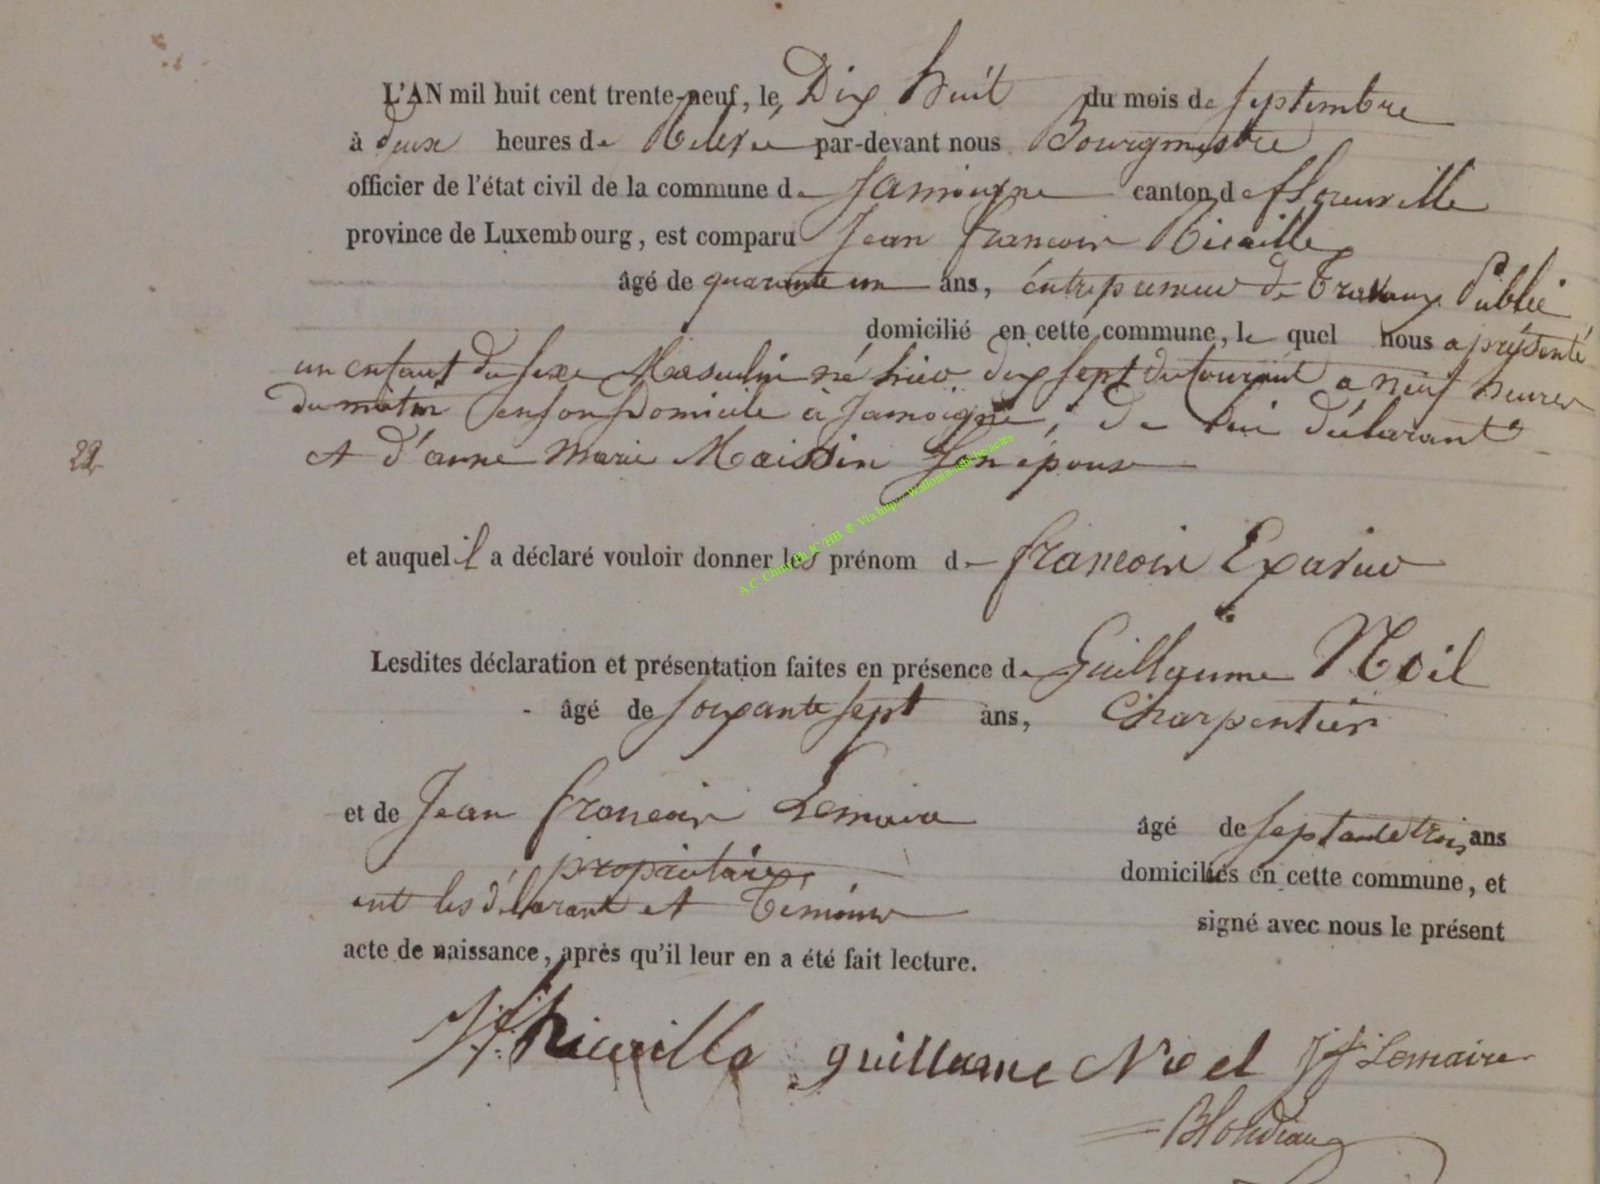 L'AN mil huit cent trente-neuf, le Dix huit du mois de septembre
à deux heures de Relevée par-devant nous Bourgmestre
officier de l'état civil de la commune de Jamoigne canton de florenville
province de Luxembourg, est comparu Jean francois Ricaille
âgé de quarante un ans, éntrepreneur de Travaux Public
domicilié en cette commune, le quel nous a présenté
un enfant du sexe Masculin né hier dix sept du courant a neuf heures
du matin en son Domicile à Jamoigne, de lui déclarant
et d'anne Marie Maissin son épouse
22
et auquel il a déclaré vouloir donner les prénom de francois
Lesdites déclaration et présentation faites en présence de Guillaume Noël
âgé de soixante sept ans, Charpentier
et de Jean francois Lemaire âgé de septante trois ans
propriétaire domiciliés en cette commune, et
ont les déclarant et Témoins signé avec nous le présent
acte de naissance, après qu'il leur en a été fait lecture.
Jf Ricaille guillaume Noel Jf Lemaire
Blondiaux